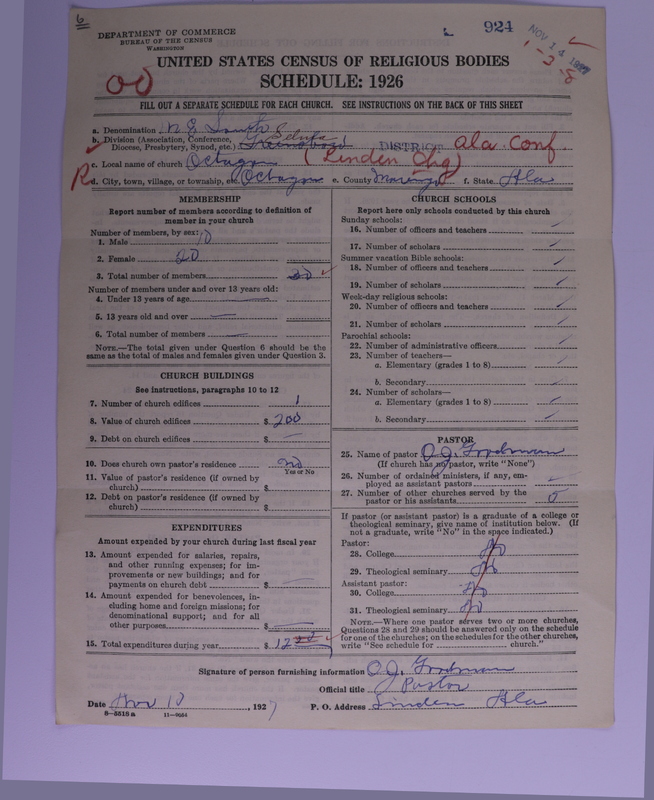 6
924
NOV 14 1927
1-2-8
DEPARTMENT OF COMMERCE
BUREAU OF THE CENSUS
WASHINGTON
UNITED STATES CENSUS OF RELIGIOUS BODIES
SCHEDULE: 1926
FILL OUT A SEPARATE SCHEDULE FOR EACH CHURCH. SEE INSTRUCTIONS ON THE BACK OF THIS SHEET
a. Denomination M E South
b. Division (Association, Conference, Diocese, Presbytery, Synod, etc.) Greensboro Selma DISTRICT Ala Conf.
c. Local name of church Octagon (Linden Chg)
d. City, town, village, or township, etc. Octagon e. County Marengo f. State Ala
MEMBERSHIP
Report number of members according to definition of member in your church
Number of members, by sex:
1. Male 10
2. Female 20
3. Total number of members
Number of members under and over 13 years old:
4. Under 13 years of age
5. 13 years old and over
6. Total number of members
NOTE.—The total given under Question 6 should be the same as the total of males and females given under Question 3.
CHURCH BUILDINGS
See instructions, paragraphs 10 to 12
7. Number of church edifices 1
8. Value of church edifices $ 200
9. Debt on church edifices $ —
10. Does church own pastor's residence no
Yes or No
11. Value of pastor's residence (if owned by church) $
12. Debt on pastor's residence (if owned by church) $
EXPENDITURES
Amount expended by your church during last fiscal year
13. Amount expended for salaries, repairs, and other running expenses; for improvements or new buildings; and for payments on church debt $ —
14. Amount expended for benevolences, including home and foreign missions; for denominational support; and for all other purposes $ —
15. Total expenditures during year $
CHURCH SCHOOLS
Report here only schools conducted by this church
Sunday schools:
16. Number of officers and teachers
17. Number of scholars
Summer vacation Bible schools:
18. Number of officers and teachers
19. Number of scholars
Week-day religious schools:
20. Number of officers and teachers
21. Number of scholars
Parochial schools:
22. Number of administrative officers
23. Number of teachers—
a. Elementary (grades 1 to 8)
b. Secondary
24. Number of scholars—
a. Elementary (grades 1 to 8)
b. Secondary
PASTOR
25. Name of pastor O. J. Goodman
(If church has no pastor, write "None")
26. Number of ordained ministers, if any, employed as assistant pastors
27. Number of other churches served by the pastor or his assistants 5
If pastor (or assistant pastor) is a graduate of a college or theological seminary, give name of institution below. (If not a graduate, write "No" in the space indicated.)
Pastor:
28. College No
29. Theological seminary No
Assistant pastor:
30. College No
31. Theological seminary No
NOTE.—Where one pastor serves two or more churches, Questions 28 and 29 should be answered only on the schedule for one of the churches; on the schedules for the other churches, write "See schedule for church."
Signature of person furnishing information O. J. Goodman
Official title Pastor
Date Nov 10, 1927 P. O. Address Linden Ala
8-5518a 11-9054